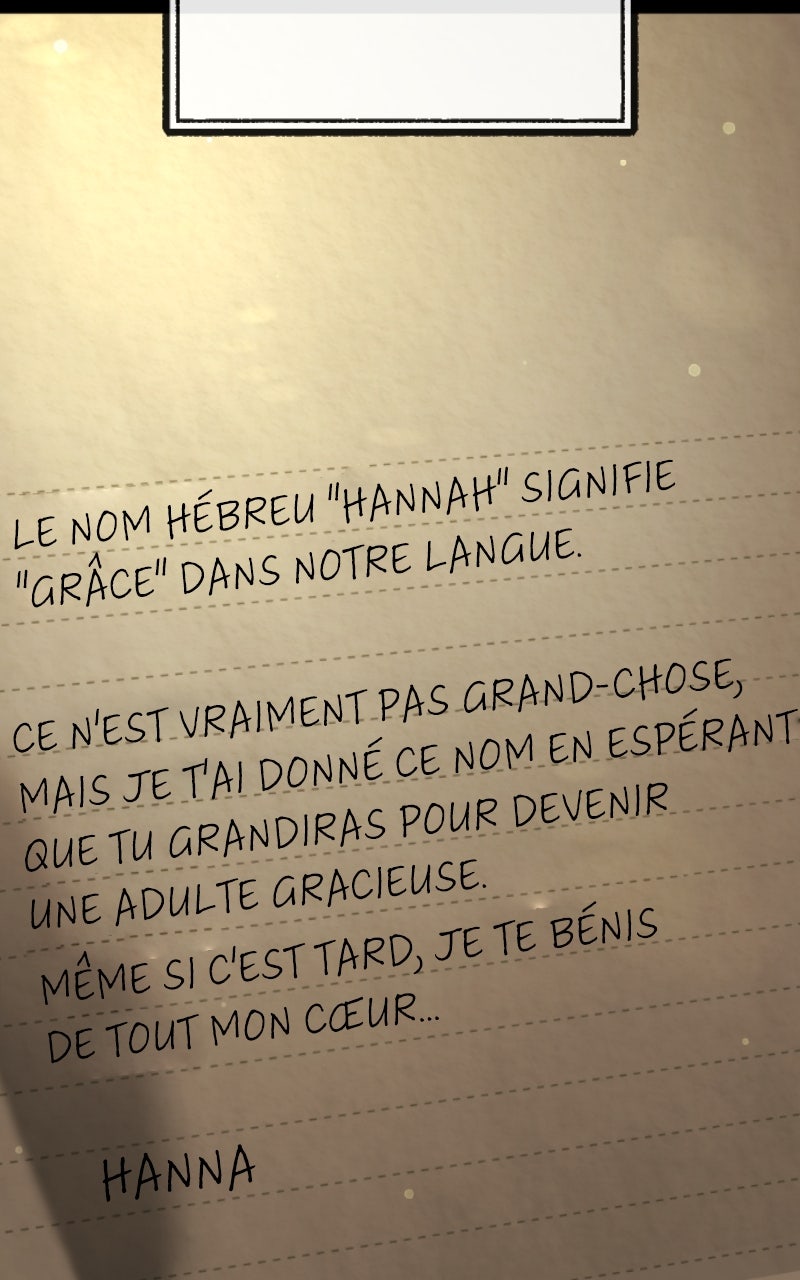 LE NOM HÉBREU "HANNAH" SIGNIFIE
"GRÂCE" DANS NOTRE LANGUE.
CE N'EST VRAIMENT PAS GRAND-CHOSE,
MAIS JE T'AI DONNÉ CE NOM EN ESPÉRANT
QUE TU GRANDIRAS POUR DEVENIR
UNE ADULTE GRACIEUSE.
MÊME SI C'EST TARD, JE TE BÉNIS
DE TOUT MON CŒUR...
HANNA